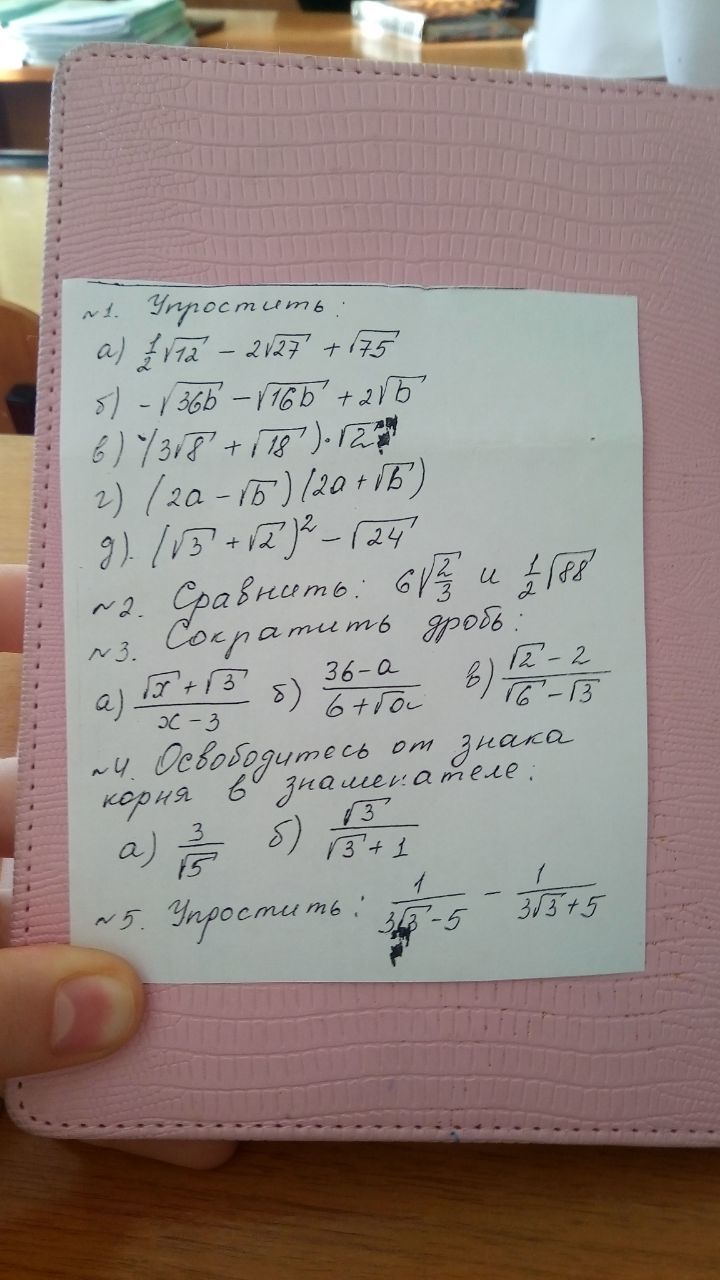 №1. Упростить:
а) 1/2√12 - 2√27 + √75
б) -√36b - √16b + 2√b
в) (3√8 + √18)·√2
г) (2a - √b)(2a + √b)
д). (√3 + √2)² - √24
№2. Сравнить: 6√2/3 и 1/2√88
№3. Сократить дробь:
а) (√x + √3)/(x - 3) б) (36 - a)/(6 + √a) в) (√2 - 2)/(√6 - √3)
№4. Освободитесь от знака
корня в знаменателе:
а) 3/√5 б) √3/(√3 + 1)
№5. Упростить: 1/(3√3 - 5) - 1/(3√3 + 5)